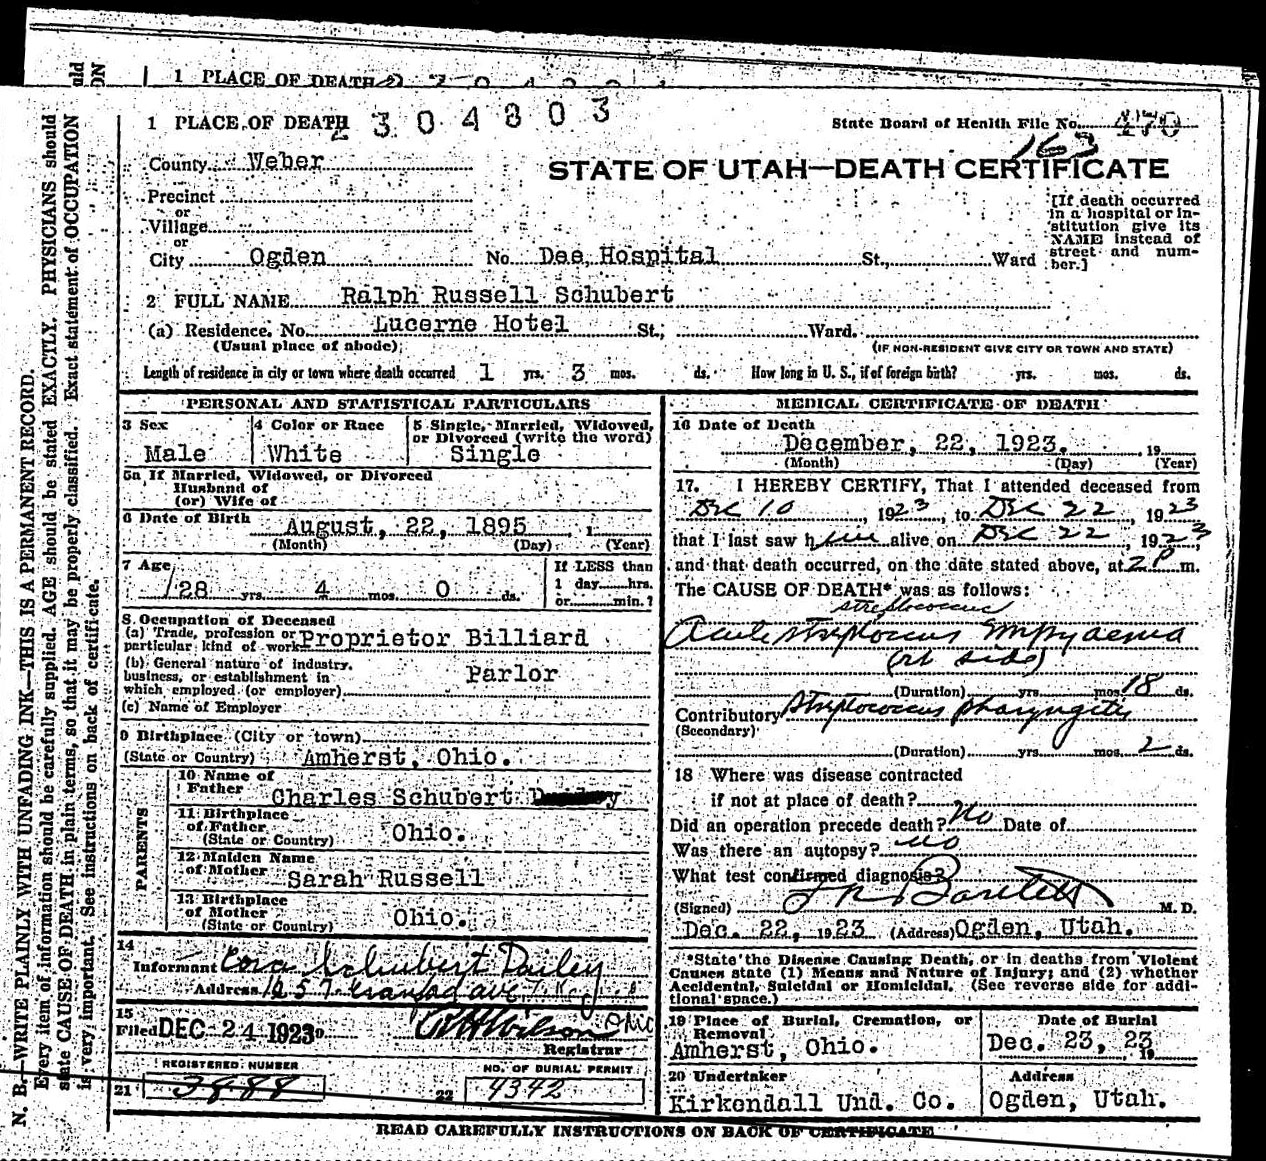 1 PLACE OF DEATH
2304803
1 PLACE OF DEATH
State Board of Health File No. 470
163
County Weber
STATE OF UTAH—DEATH CERTIFICATE
Precinct
or
Village
or
City Ogden No. Dee Hospital St., Ward
[If death occurred
in a hospital or in-
stitution give its
NAME instead of
street and num-
ber.]
2 FULL NAME Ralph Russell Schubert
(a) Residence. No. Lucerne Hotel St., Ward.
(Usual place of abode)
(IF NON-RESIDENT GIVE CITY OR TOWN AND STATE)
Length of residence in city or town where death occurred 1 yrs. 3 mos. ds. How long in U. S., if of foreign birth? yrs. mos. ds.
PERSONAL AND STATISTICAL PARTICULARS
3 Sex
Male
4 Color or Race
White
5 Single, Married, Widowed,
or Divorced (write the word)
Single
5a If Married, Widowed, or Divorced
Husband of
(or) Wife of
6 Date of Birth August, 22, 1895 1
(Month) (Day) (Year)
7 Age
28 yrs. 4 mos. 0 ds.
If LESS than
1 day hrs.
or min.?
8 Occupation of Deceased
(a) Trade, profession or
particular kind of work Proprietor Billiard
(b) General nature of industry,
business, or establishment in
which employed (or employer) Parlor
(c) Name of Employer
9 Birthplace (City or town)
(State or Country) Amherst, Ohio.
PARENTS
10 Name of
Father Charles Schubert
11 Birthplace
of Father
(State or Country) Ohio.
12 Maiden Name
of Mother Sarah Russell
13 Birthplace
of Mother
(State or Country) Ohio.
14
Informant Cora Schubert Dailey
Address
15
Filed DEC 24 1923
Wilson
Ohio
Registrar
REGISTERED NUMBER
21 3888
NO. OF BURIAL PERMIT
22 4342
MEDICAL CERTIFICATE OF DEATH
16 Date of Death
December, 22, 1923. 19
(Month) (Day) (Year)
17. I HEREBY CERTIFY, That I attended deceased from
Dec 10, 1923, to Dec 22, 1923
that I last saw him alive on Dec 22, 1923,
and that death occurred, on the date stated above, at 2 P m.
The CAUSE OF DEATH* was as follows:
streptococcus
Acute streptoccus Empyaemia
(rt side)
(Duration) yrs. mos. 18 ds.
Contributory Streptococcus pharyngitis
(Secondary)
(Duration) yrs. mos. 2 ds.
18 Where was disease contracted
if not at place of death?
Did an operation precede death? No Date of
Was there an autopsy? no
What test confirmed diagnosis?
(Signed) Bartlett M. D.
Dec. 22, 1923 (Address) Ogden, Utah.
*State the Disease Causing Death, or in deaths from Violent
Causes state (1) Means and Nature of Injury; and (2) whether
Accidental, Suicidal or Homicidal. (See reverse side for addi-
tional space.)
19 Place of Burial, Cremation, or
Removal
Amherst, Ohio.
Date of Burial
Dec. 23, 23
19
20 Undertaker
Kirkendall Und. Co.
Address
Ogden, Utah.
READ CAREFULLY INSTRUCTIONS ON BACK OF CERTIFICATE
N. B.—WRITE PLAINLY WITH UNFADING INK—THIS IS A PERMANENT RECORD.
Every item of information should be carefully supplied. AGE should be stated EXACTLY. PHYSICIANS should
state CAUSE OF DEATH in plain terms, so that it may be properly classified. Exact statement of OCCUPATION
is very important. See instructions on back of certificate.